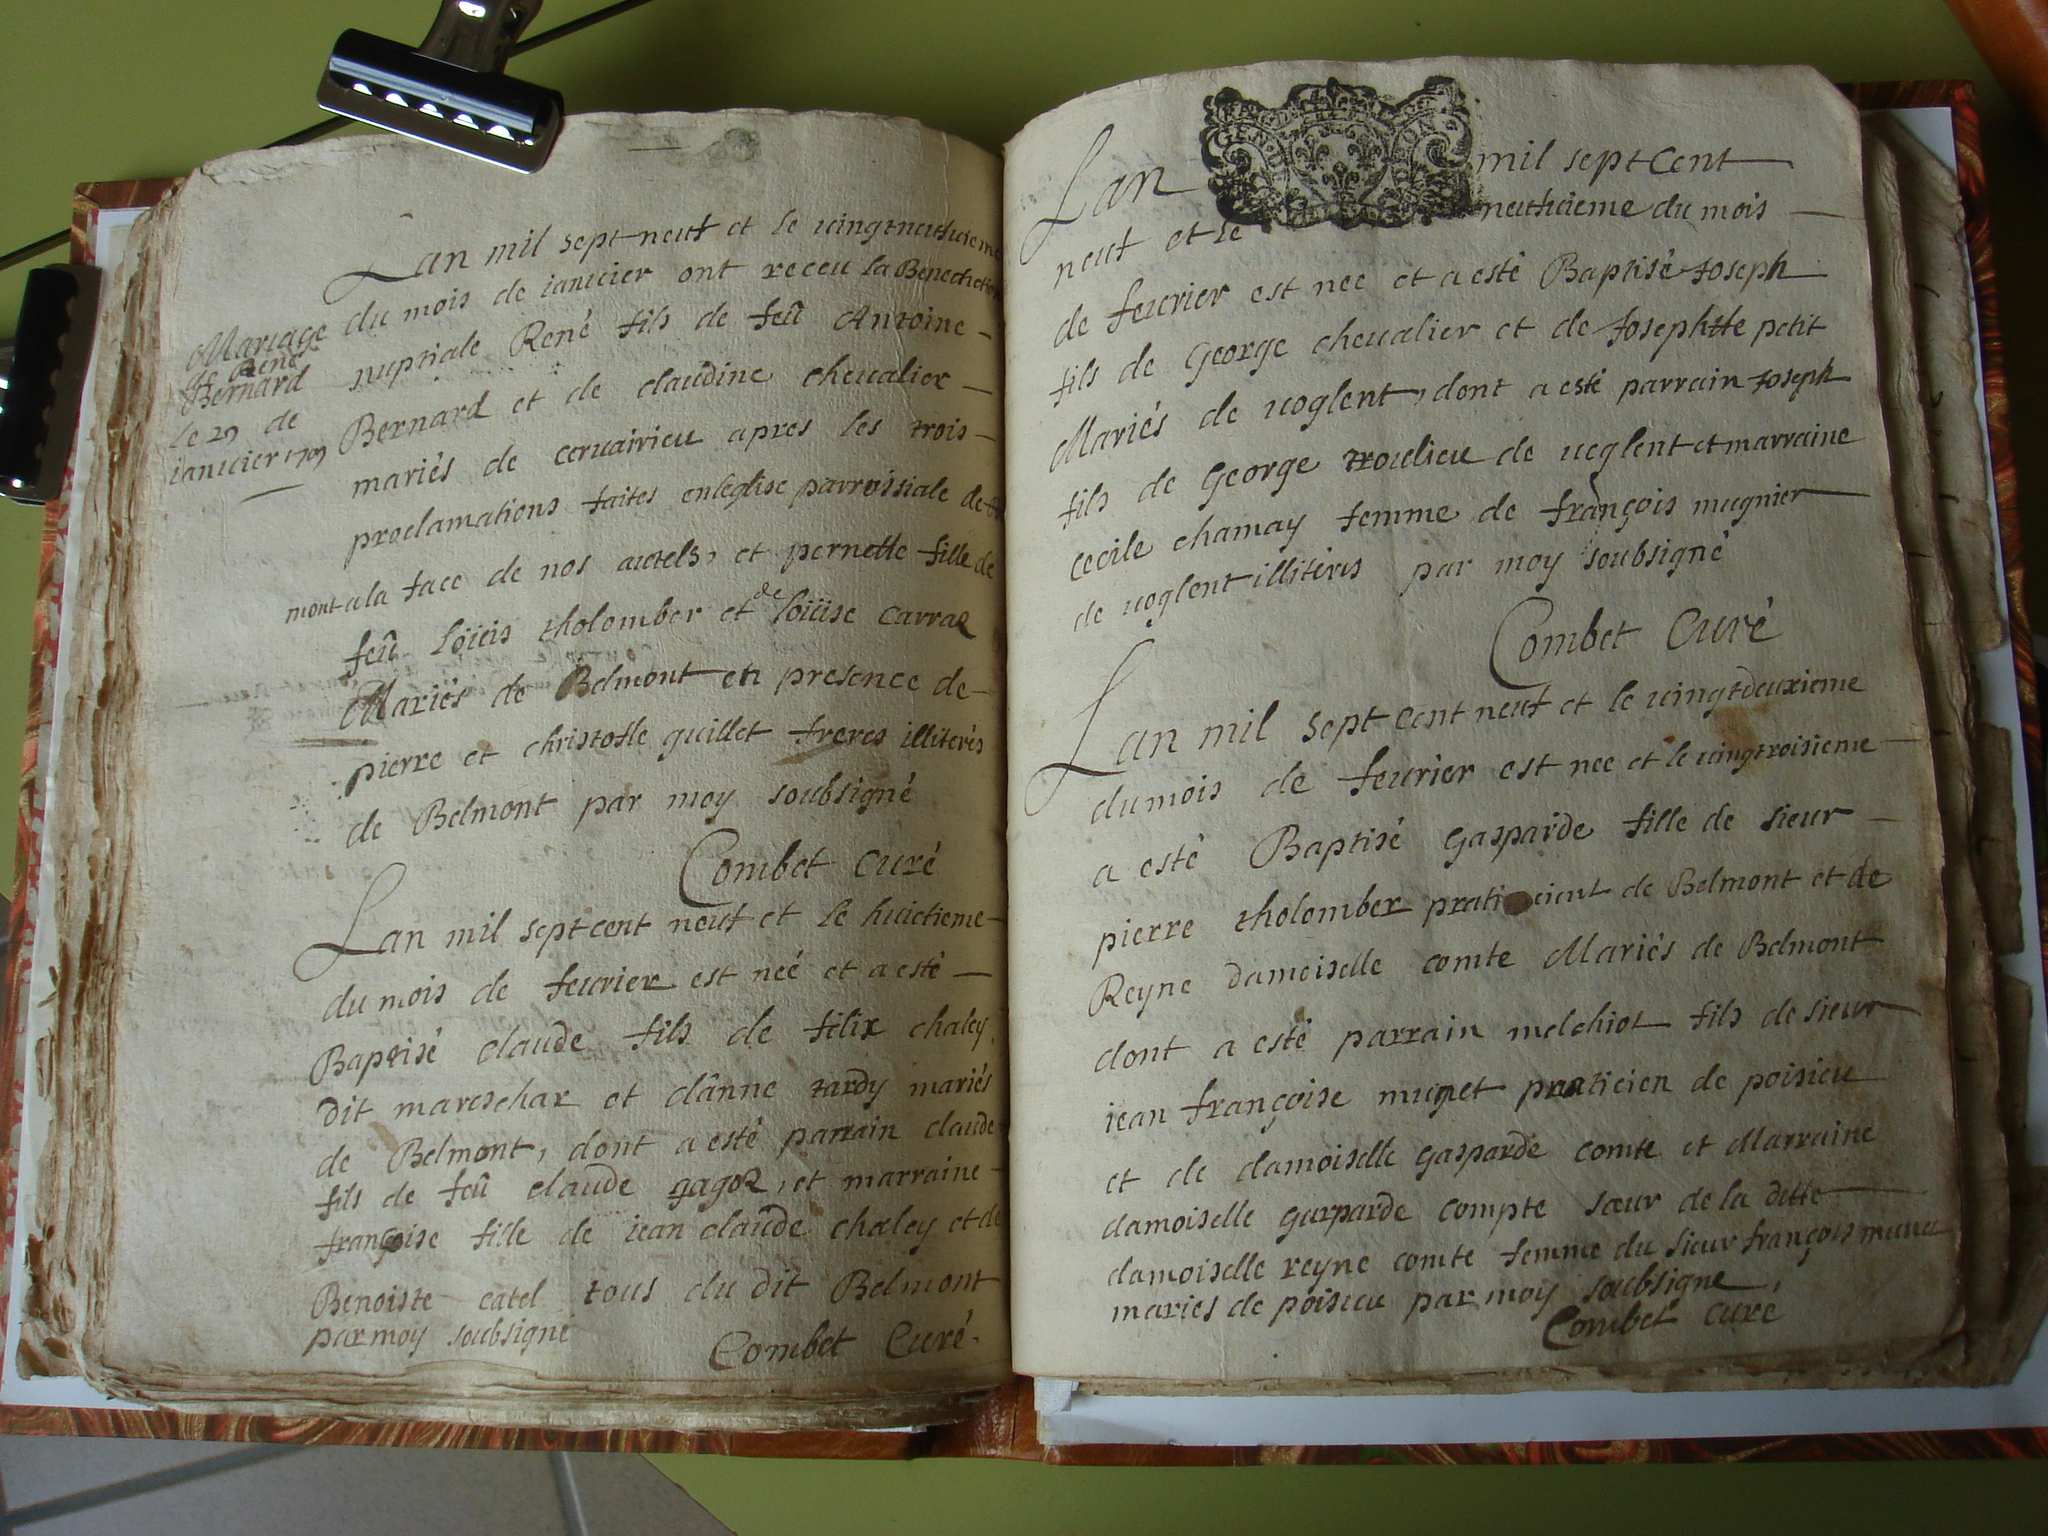 Mariage
de René
Bernard
le 29 de
ianuier 1709
Lan mil sept neuf et le uingtneufuieme
du mois de ianuier ont receu la Benediction
nuptiale René fils de feû Antoine
Bernard et de claudine cheualier
mariés de ceruairieu apres les trois
proclamations faites enleglise parroissiale de
mont a la face de nos autels, et pernette fille de
feû loüis tholomber et de loüise carraz
Mariés de Belmont en presence de
pierre et christofle guillet freres illiterés
de Belmont par moy soubsigné
Combet Curé
Lan mil sept cent neuf et le huictieme
du mois de feurier est neé et a esté
Baptisé claude fils de felix chaley
dit mareschar et dânne tardy mariés
de Belmont, dont a esté parrain claude
fils de feû claude gagoz, et marraine
françoise fille de iean claude chaley et de
Benoiste catel tous du dit Belmont
par moy soubsigné
Combet Curé
Lan mil sept Cent
neuf et le neufuieme du mois
de feurier est nee et a esté Baptisé Joseph
fils de George cheualier et de Josephtte petit
Mariés de uoglent, dont a esté parrain Joseph
fils de George trouilieu de ueglent et marraine
cecile chamay femme de françois mugnier
de uoglent illiterés par moy soubsigné
Combet Curé
Lan mil sept cent neuf et le uingtdeuxieme
du mois de feurier est nee et le uingtroisieme
a esté Baptisé gasparde fille de sieur
pierre tholomber praticient de Belmont et de
Reyne damoiselle comte Mariés de Belmont
dont a esté parrain melchiot fils de sieur
iean françoise muget praticien de poisieu
et de damoiselle gasparde comte et Marraine
damoiselle gasparde compte sœur de la ditte
damoiselle reyne comte femme du sieur françois
mariés de poisieu par moy soubsigne
Combet curé